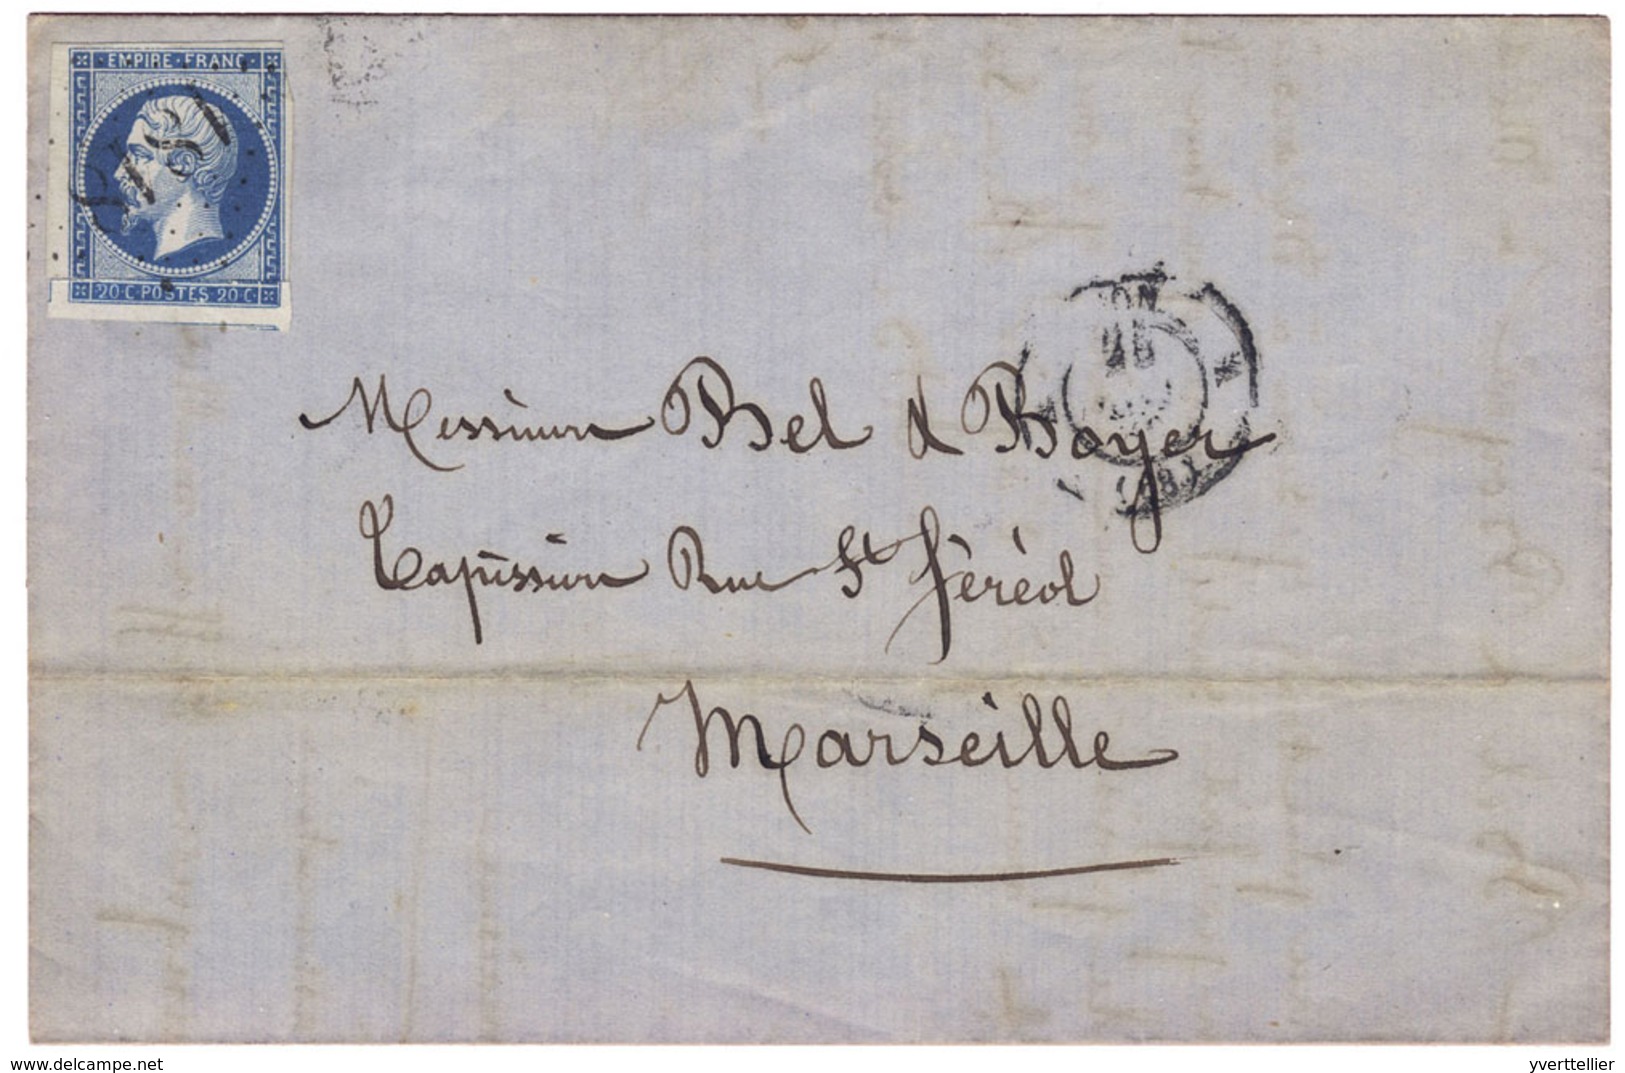 EMPIRE·FRANÇ·
20·C·POSTES 20·C·
1818
(68)
Messieurs Bel & Boyer
Tapissiers Rue St Féréol
Marseille
delcampe.net
yverttellier